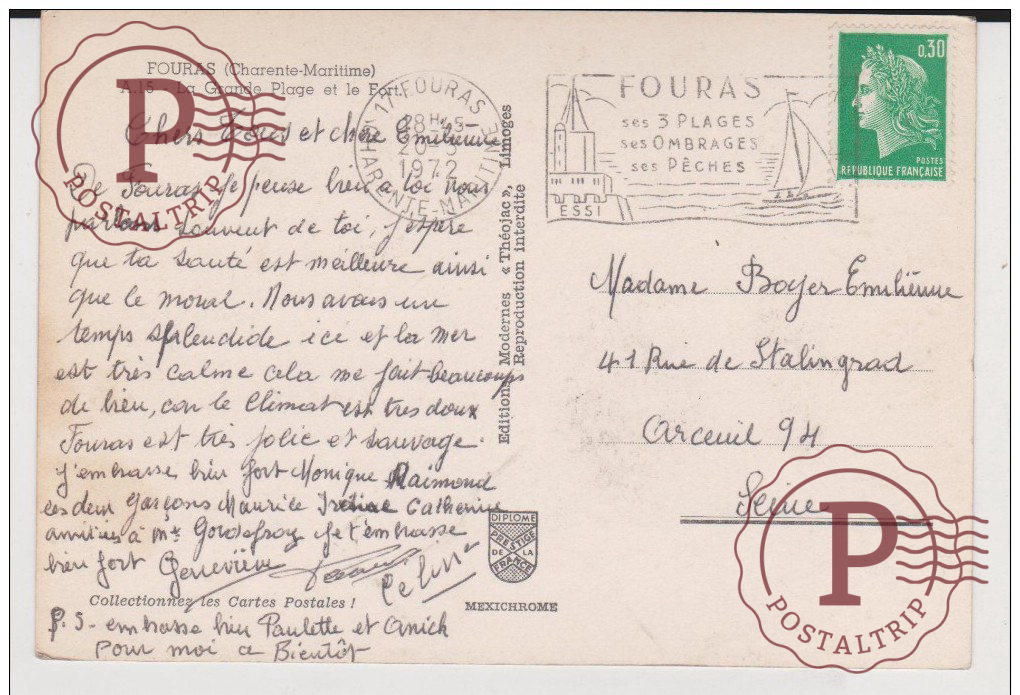 FOURAS (Charente-Maritime)
A.15 - La Grande Plage et le Fort
Chers Tous et chère Emilienne
De Fouras je pense bien à toi nous
parlons souvent de toi, j'espère
que ta santé est meilleure ainsi
que le moral. Nous avons un
temps splendide ici et la mer
est très calme cela me fait beaucoups
de bien, car le climat est très doux
Fouras est très jolie et sauvage.
J'embrasse bien fort Monique Raimond
les deux garçons Maurice Catherine
amitiés à Mme Godefroy je t'embrasse
bien fort Geneviève
Collectionnez les Cartes Postales !
P.S - embrasse bien Paulette et Anick
Pour moi a Bientôt
Editions Modernes « Théojac », Limoges
Reproduction interdite
DIPLOME
PRESTIGE
DE LA
FRANCE
MEXICHROME
17 FOURAS
18H 15-
1972
CHARENTE-MARITIME
FOURAS
ses 3 PLAGES
ses OMBRAGES
ses PÊCHES
ESSI
0,30
POSTES
REPUBLIQUE FRANÇAISE
Madame Boyer Emiliènne
41 Rue de Stalingrad
Arceuil 94
Seine
P
POSTALTRIP
P
POSTALTRIP